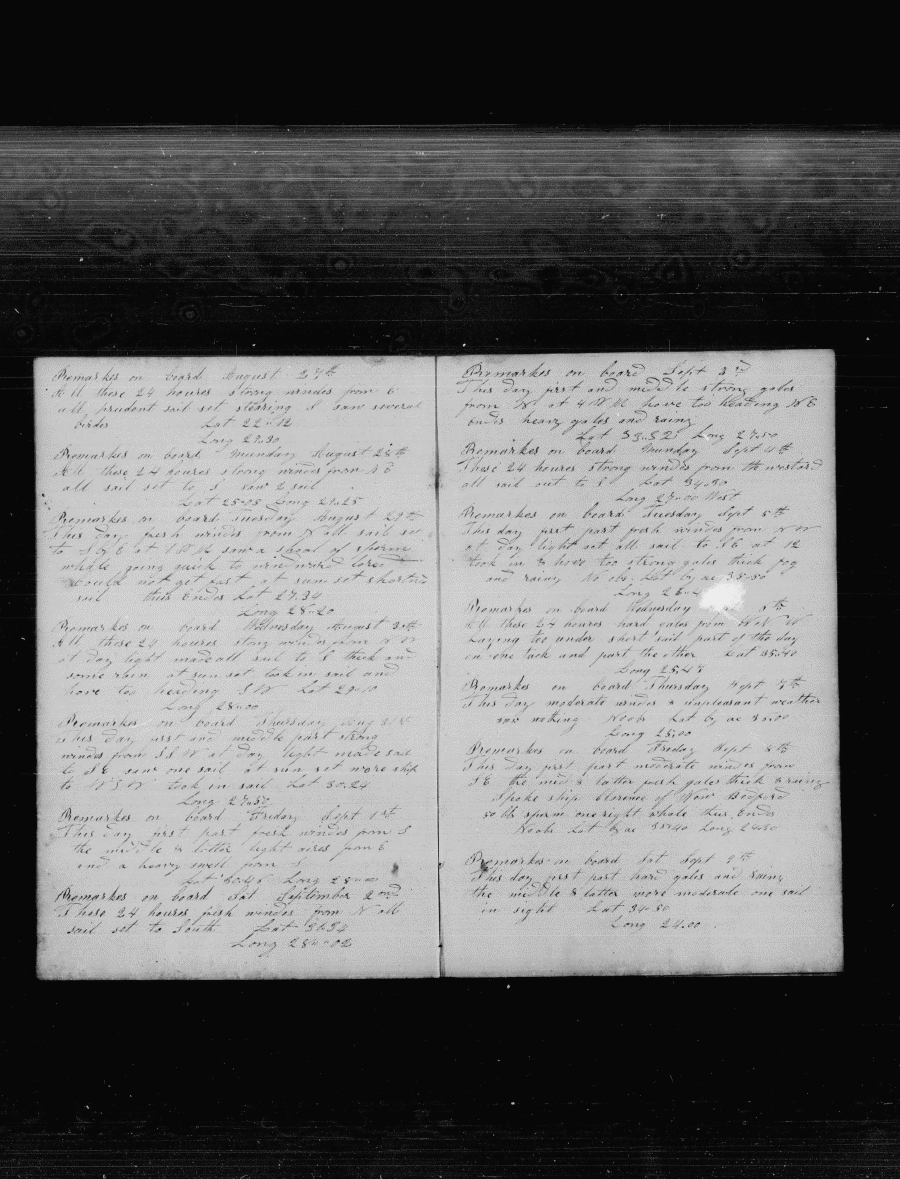 Remarkes on board August 27th
All these 24 houres strong windes from E
all prudent sail set stearing S saw several
birdes Lat 22-12
Long 29.30
Remarkes on board Munday August 28th
All these 24 houres strong windes from N E
all sail set to S saw 2 sail
Lat 25-05 Long 29.25
Remarkes on board Tuesday August 29th
This day fresh windes from N all sail set
to S by E at 1 P M saw a shoal of sperm
whale going quick to windward
could not get fast at sun set shortned
sail this Endes Lat 27.34
Long 28-20
Remarkes on board Wednesday August 30th
All these 24 houres strong windes from N W
at day light made all sail to S thick and
some rain at sun set took in sail and
hove too heading S W Lat 29-10
Long 28-00
Remarkes on board Thursday Aug 31st
This day first and middle part strong
windes from S S W at day light made sail
to S E saw one sail at sun set wore ship
to W S W took in sail Lat 30.24
Long 27.50
Remarkes on board Friday Sept 1st
This day first part fresh windes from S
the middle & latter light aires from E
and a heavy swell from S
Lat 30.46 Long 28-00
Remarkes on board Sat September 2nd
These 24 houres fresh windes from N all
sail set to South Lat
Long 28-02
Remarkes on board Sept 3rd
This day first and middle strong gales
from N at 4 P M hove too heading N E
Endes heavy gales and rainy
Lat 33.52 Long 27.50
Remarkes on board Munday Sept 4th
These 24 houres strong windes from the westard
all sail out to S Lat 34.30
Long 27-00 West
Remarkes on board Tuesday Sept 5th
This day first part fresh windes from N W
at day light set all sail to S E at 12
took in & hove too strong gales thick fog
and rainy No obs Lat by ac 35.50
Long 26
Remarkes on board Wednesday 6th
All these 24 houres hard gales from W N W
Laying too under short sail part of the day
on one tack and part the other Lat 35.40
Long 25.47
Remarkes on board Thursday Sept 7th
This day moderate windes & unpleasant weather
saw nothing Noobs Lat by ac
Long 25.00
Remarkes on board Friday Sept 8th
This day first part moderate windes from
S E the mid & latter fresh gales thick & rainy
Spoke ship Clarence of New Bedford
50 bls sperm one right whale thus Endes
Noob Lat by ac 35.40 Long 24.30
Remarkes on board Sat Sept 9th
This day first part hard gales and rainy
the middle & latter more moderate one sail
in sight Lat 34.50
Long 24.00